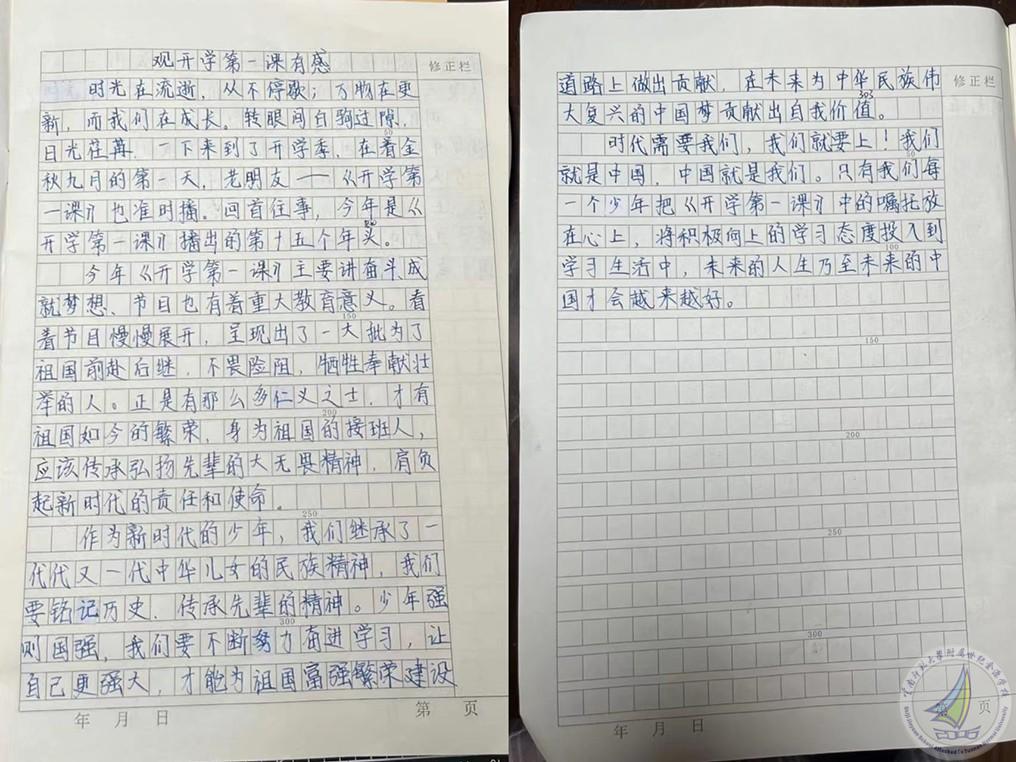 观开学第一课有感
修正栏
时光在流逝，从不停歇；万物在更
新，而我们在成长。转眼间白驹过隙，
50
日光荏苒，一下来到了开学季，在着金
秋九月的第一天，老朋友——《开学第
一课》也准时播。回首往事，今年是《
100
开学第一课》播出的第十五个年头。
今年《开学第一课》主要讲奋斗成
就梦想、节目也有着重大教育意义。看
150
着节目慢慢展开，呈现出了一大批为了
祖国前赴后继，不畏险阻，牺牲奉献壮
举的人。正是有那么多仁义之士，才有
200
祖国如今的繁荣，身为祖国的接班人，
应该传承弘扬先辈的大无畏精神，肩负
起新时代的责任和使命。
250
作为新时代的少年，我们继承了一
代代又一代中华儿女的民族精神，我们
要铭记历史，传承先辈的精神。少年强
300
则国强，我们要不断努力奋进学习，让
自己更强大，才能为祖国富强繁荣建设
年 月 日
第 页
道路上做出贡献，在未来为中华民族伟
修正栏
大复兴的中国梦贡献出自我价值。
时代需要我们，我们就要上！我们
50
就是中国，中国就是我们。只有我们每
一个少年把《开学第一课》中的嘱托放
在心上，将积极向上的学习态度投入到
100
学习生活中，未来的人生乃至未来的中
国才会越来越好。
150
200
250
300
年 月 日
页